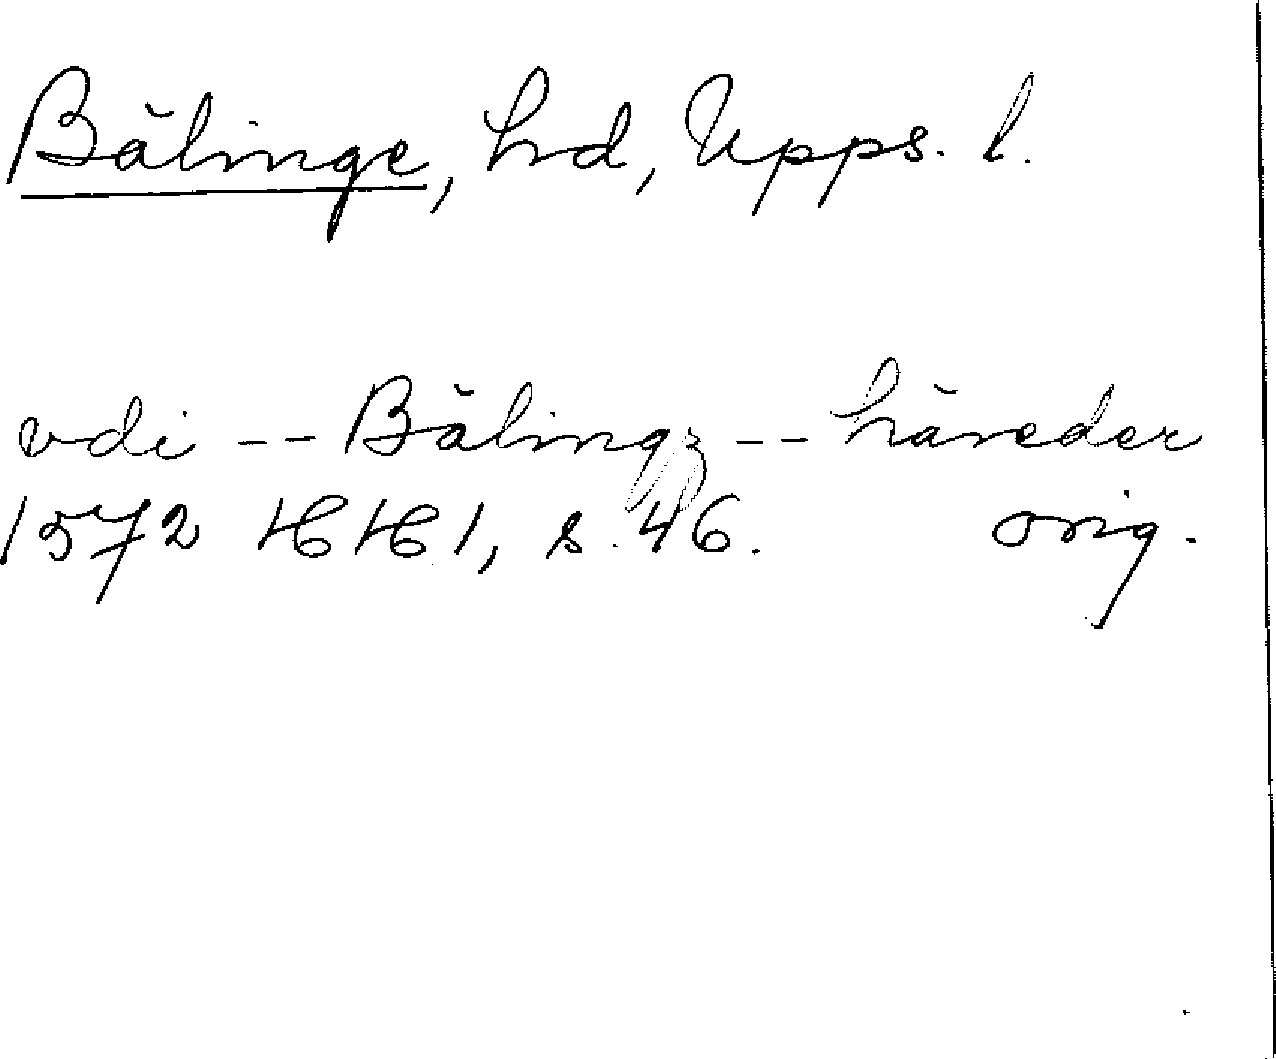 Bälinge, hd, Upps. l.
vdi -- Bälingz -- häreder
1572 HH 1, s. 46. orig.